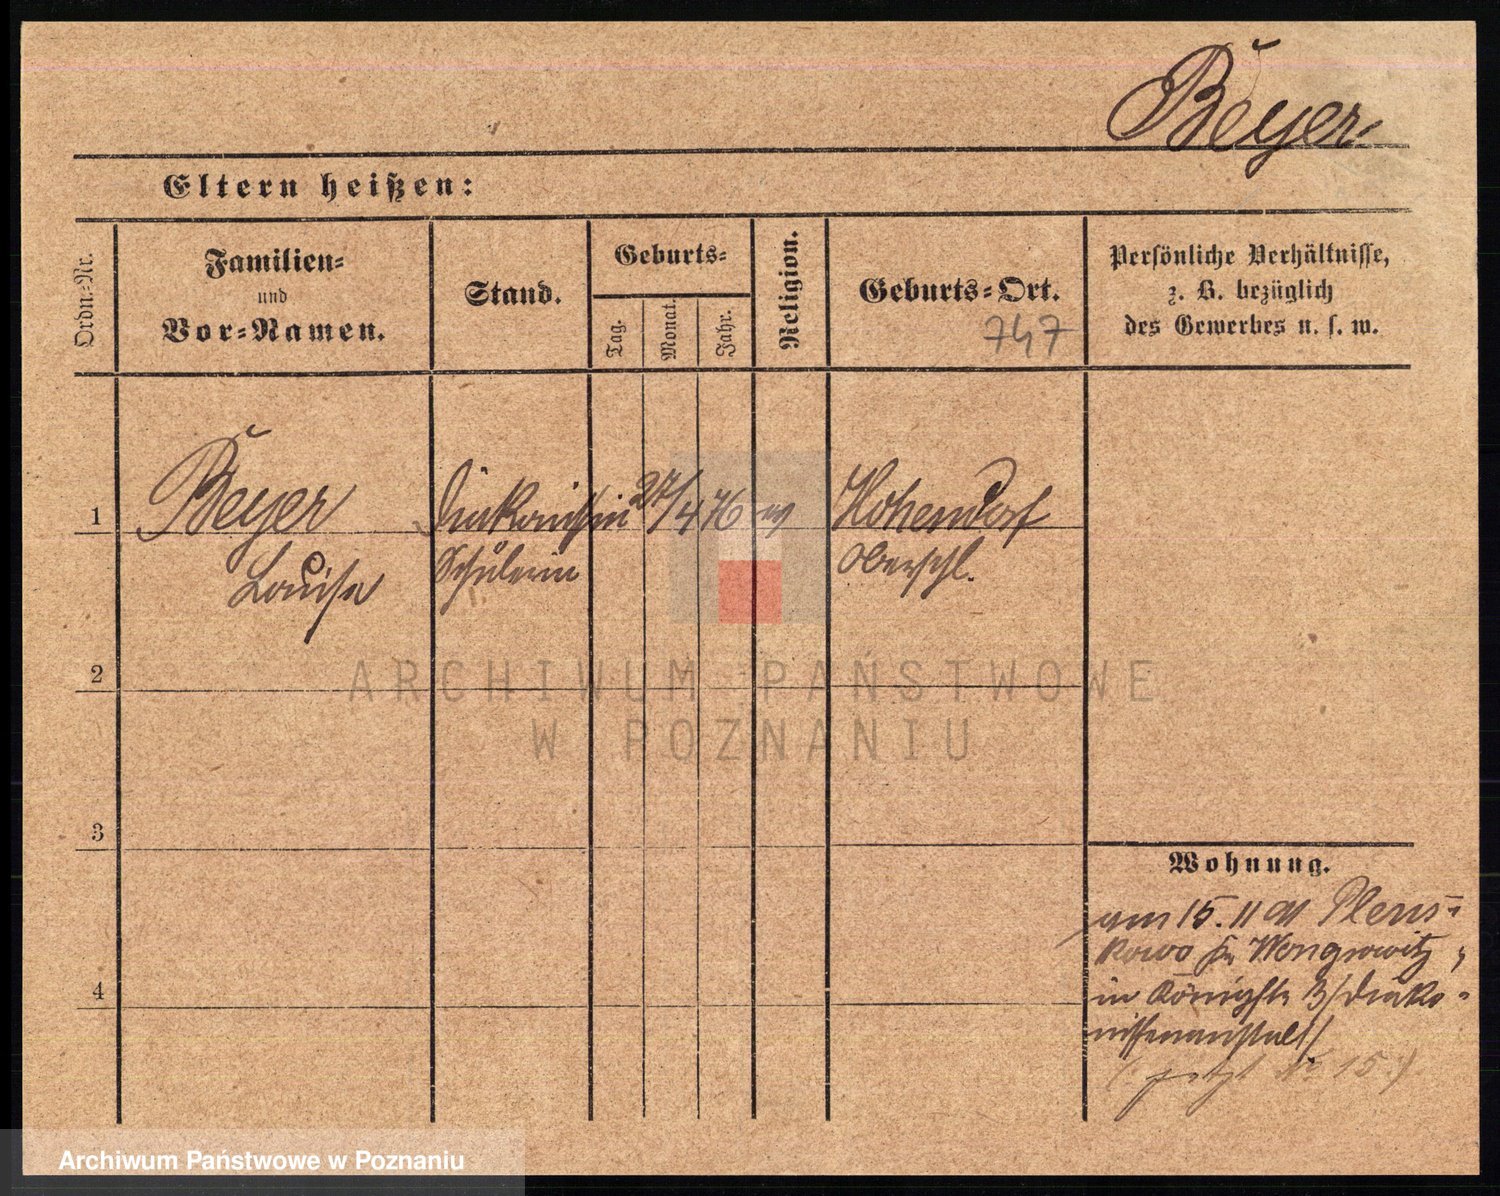 Beyer
Eltern heißen:
Ordn.-Nr.
Familien-
und
Vor-Namen.
Stand.
Geburts-
Tag.
Monat.
Jahr.
Religion.
Geburts-Ort.
747
Persönliche Verhältnisse,
z. B. bezüglich
des Gewerbes u. s. w.
1 Beyer Diakonissin 27/4 76 ev Hohendorf
Louise Schülerin Oberschl.
2
ARCHIWUM PAŃSTWOWE
W POZNANIU
3
Wohnung.
am 15. 11 01 Plens-
kowo Kr Wongrowitz,
4
in Königstr. 3/Diako-
nissenanstalt/
(jetzt No 15.)
Archiwum Państwowe w Poznaniu